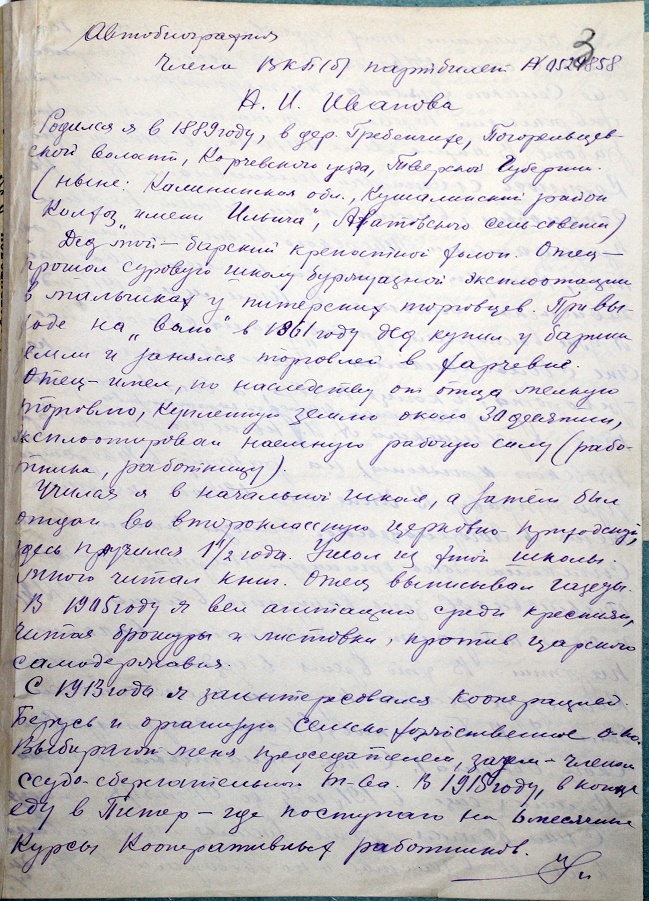 Автобиография
3
Члена ВКП(б) партбилет № 0524858
А. И. Иванова
Родился я в 1889 году, в дер. Гребенчихе, Погорельцев-
ской волости, Корчевского уезда, Тверской Губернии.
(ныне: Калининская обл., Кушалинский район
Колхоз „имени Ильича", Сельсовета)
Дед мой — барский крепостной холоп. Отец —
прошол суровую школу буржуазной эксплоотации
в мальчиках у питерских торговцев. При вы-
ходе на „волю" в 1861 году дед купил у барина
земли и занялся торговлей в харчевне.
Отец — имел, по наследству от отца мелкую
торговлю, купленную землю около 30 десятин,
эксплоотировал наемную рабочую силу (рабо-
тника, работницу).
Учился я в начальной школе, а затем был
отдан во второклассную церковно-приходскую,
здесь проучился 1 1/2 года. Ушол из этой школы.
Много читал книг. Отец выписывал газеты.
В 1905 году я вел агитацию среди крестьян,
читая брошюры и листовки, против царского
самодержавия.
С 1913 года я заинтересовался кооперацией.
Берусь и организую сельско-хозяйственное о-во.
Выбирают меня председателем, затем — членом
ссудо-сберегательного т-ва. В 1915 году, в конце
еду в Питер — где поступаю на 6 месячные
Курсы Кооперативных работников.